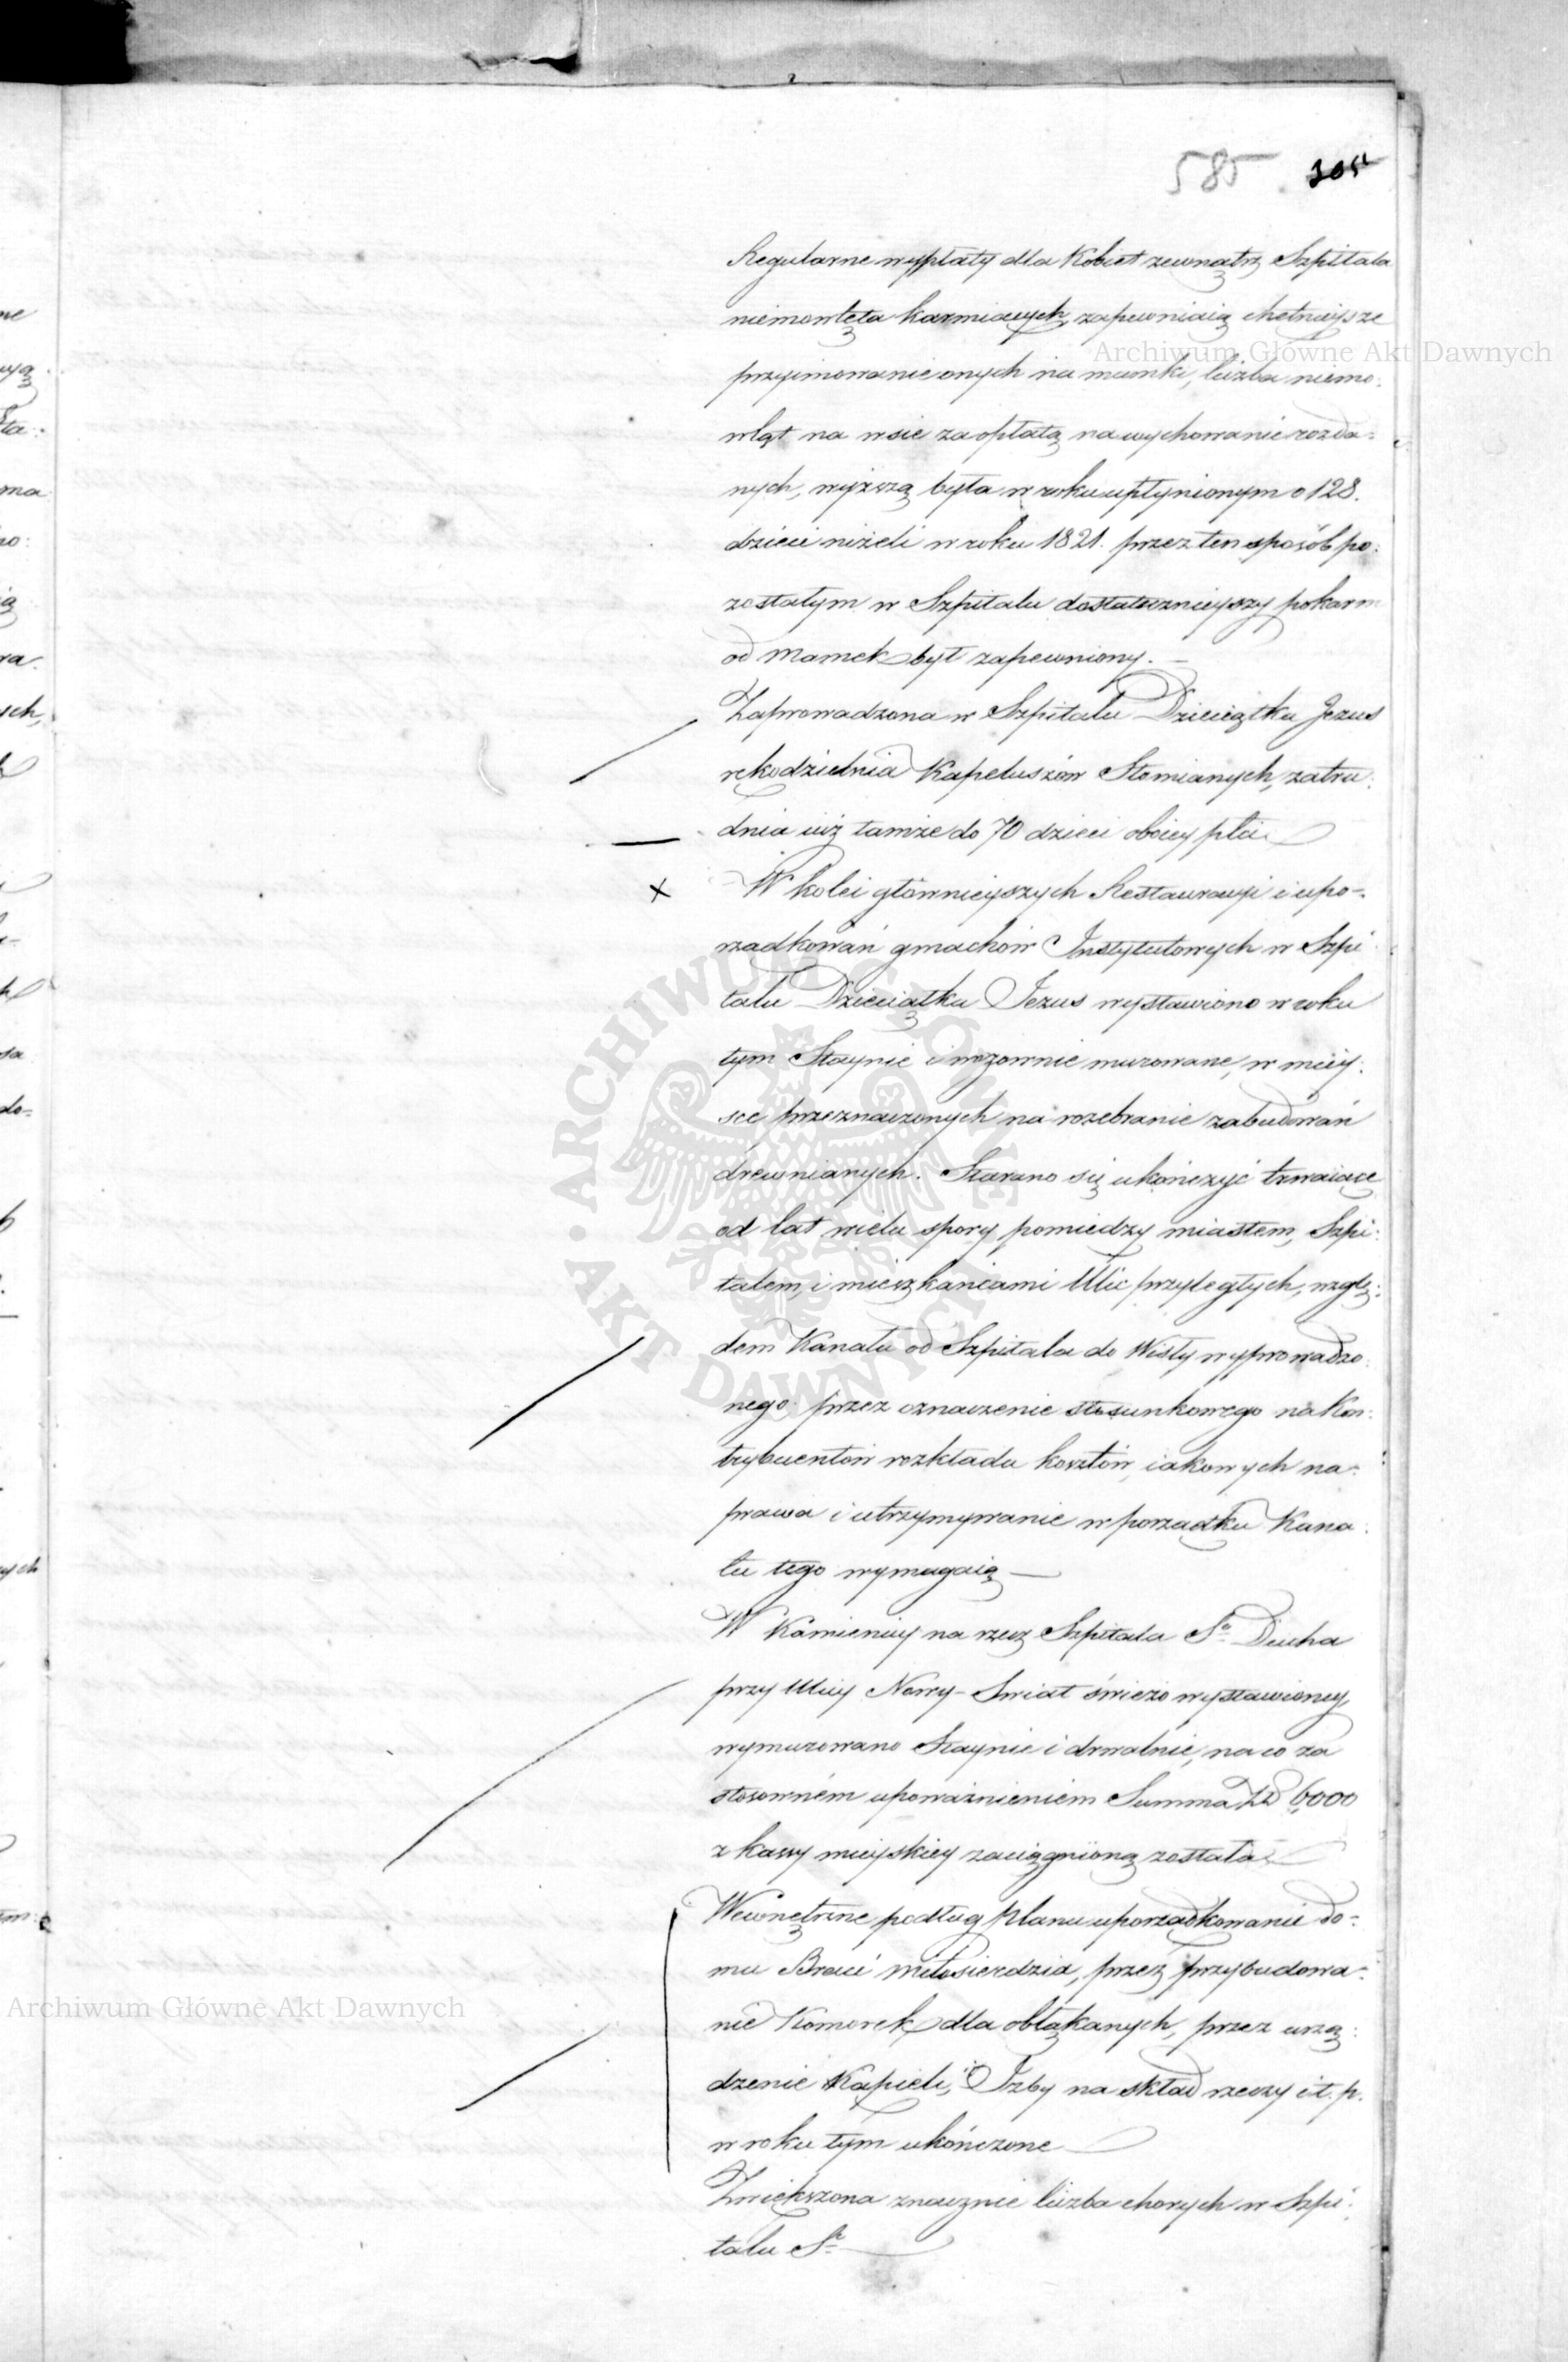 585 305
Regularne wypłaty dla Kobiet zewnątrz Szpitala
niemowlęta karmiących, zapewniaią chętnieysze
przyimowanie onych na mamki, liczba niemo:
wląt na wsie za opłatą na wychowanie rozda:
nych, wyższą była w roku upłynionym o 128.
dzieci niżeli w roku 1821. przez ten sposób po:
zostałym w Szpitalu dostatecznieyszy pokarm
od Mamek był zapewniony. —
Zaprowadzona w Szpitalu Dzieciątka Jezus
rękodzielnia Kapeluszów Słomianych, zatru:
dnia iuż tamże do 70 dzieci oboiey płci
W kolei głównieyszych Restauracyi i upo-
rządkowań gmachów Instytutowych w Szpi:
talu Dzieciątka Jezus wystawiono w roku
tym Staynie i wozownie murowane, w miey:
sce przeznaczonych na rozebranie zabudowań
drewnianych. Starano się ukończyć trwaiące
od lat wielu spory pomiedzy miastem, Szpi:
talem, i mieszkańcami Ulic przyległych, wzglę:
dem Kanału od Szpitala do Wisły wyprowadzo:
nego przez oznaczenie stosunkowego na Kon:
trybuentów rozkładu kosztów, iakowych na:
prawa i utrzymywanie w porządku Kana:
łu tego wymagaią —
W Kamienicy na rzecz Szpitala Sº Ducha
przy Ulicy Nowy-Swiat świeżo wystawioney,
wymurowano Staynie i drwalnie, na co za
stosowném upoważnieniem Summa Zł 6000
z kassy mieyskiey zaciągnioną została
Wewnętrzne podług Planu uporządkowanie do-
mu Braci miłosierdzia, przez przybudowa-
nie Komorek dla obłąkanych, przez urzą:
dzenie Kąpieli, Izby na skład rzeczy i t. p.
w roku tym ukończone
Zwiększona znacznie liczba chorych w Szpi:
talu Sº
Archiwum Główne Akt Dawnych
Archiwum Główne Akt Dawnych
ARCHIWUM GŁÓWNE AKT DAWNYCH